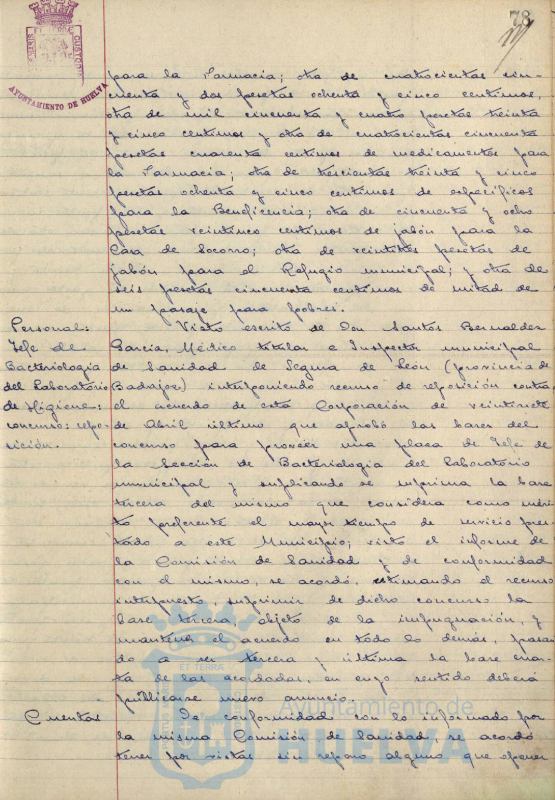 78
AYUNTAMIENTO DE HUELVA
para la Farmacia; otra de cuatrocientas cin-
cuenta y dos pesetas ochenta y cinco centimos,
otra de mil cincuenta y cuatro pesetas treinta
y cinco centimos y otra de cuatrocientas cincuenta
pesetas cuarenta centimos de medicamentos para
la Farmacia; otra de trescientas treinta y cinco
pesetas ochenta y cinco centimos de especificos
para la Beneficencia; otra de cincuenta y ocho
pesetas veinticinco centimos de jabón para la
Casa de Socorro; otra de veintitres pesetas de
jabón para el Refugio municipal; y otra de
seis pesetas cincuenta centimos de mitad de
un pasaje para pobres.
Personal:
Jefe de
Bacteriologia
del Laboratorio
de Higiene:
concurso: repo-
sición.
Visto escrito de Don Santos Bermalder
Garcia, Médico titular e Inspector municipal
de Sanidad de Segura de León (provincia de
Badajoz) interponiendo recurso de reposición contra
el acuerdo de esta Corporación de veintisiete
de Abril último que aprobó las bases del
concurso para proveer una plaza de Jefe de
la Sección de Bacteriologia del Laboratorio
municipal y suplicando se suprima la base
tercera del mismo que considera como méri-
to preferente el mayor tiempo de servicio pres-
tado a este Municipio; visto el informe de
la Comisión de Sanidad y de conformidad
con el mismo, se acordó, estimando el recurso
interpuesto, suprimir de dicho concurso la
base tercera, objeto de la impugnación, y
mantener el acuerdo en todo lo demás, pasan-
do a ser tercera y última la base cuar-
ta de las acordadas, en cuyo sentido deberá
publicarse nuevo anuncio.
Cuentas
De conformidad con lo informado por
la misma Comisión de Sanidad se acordó
tener por vistas sin reparo alguno que oponer
ET TERRA
Ayuntamiento de
HUELVA